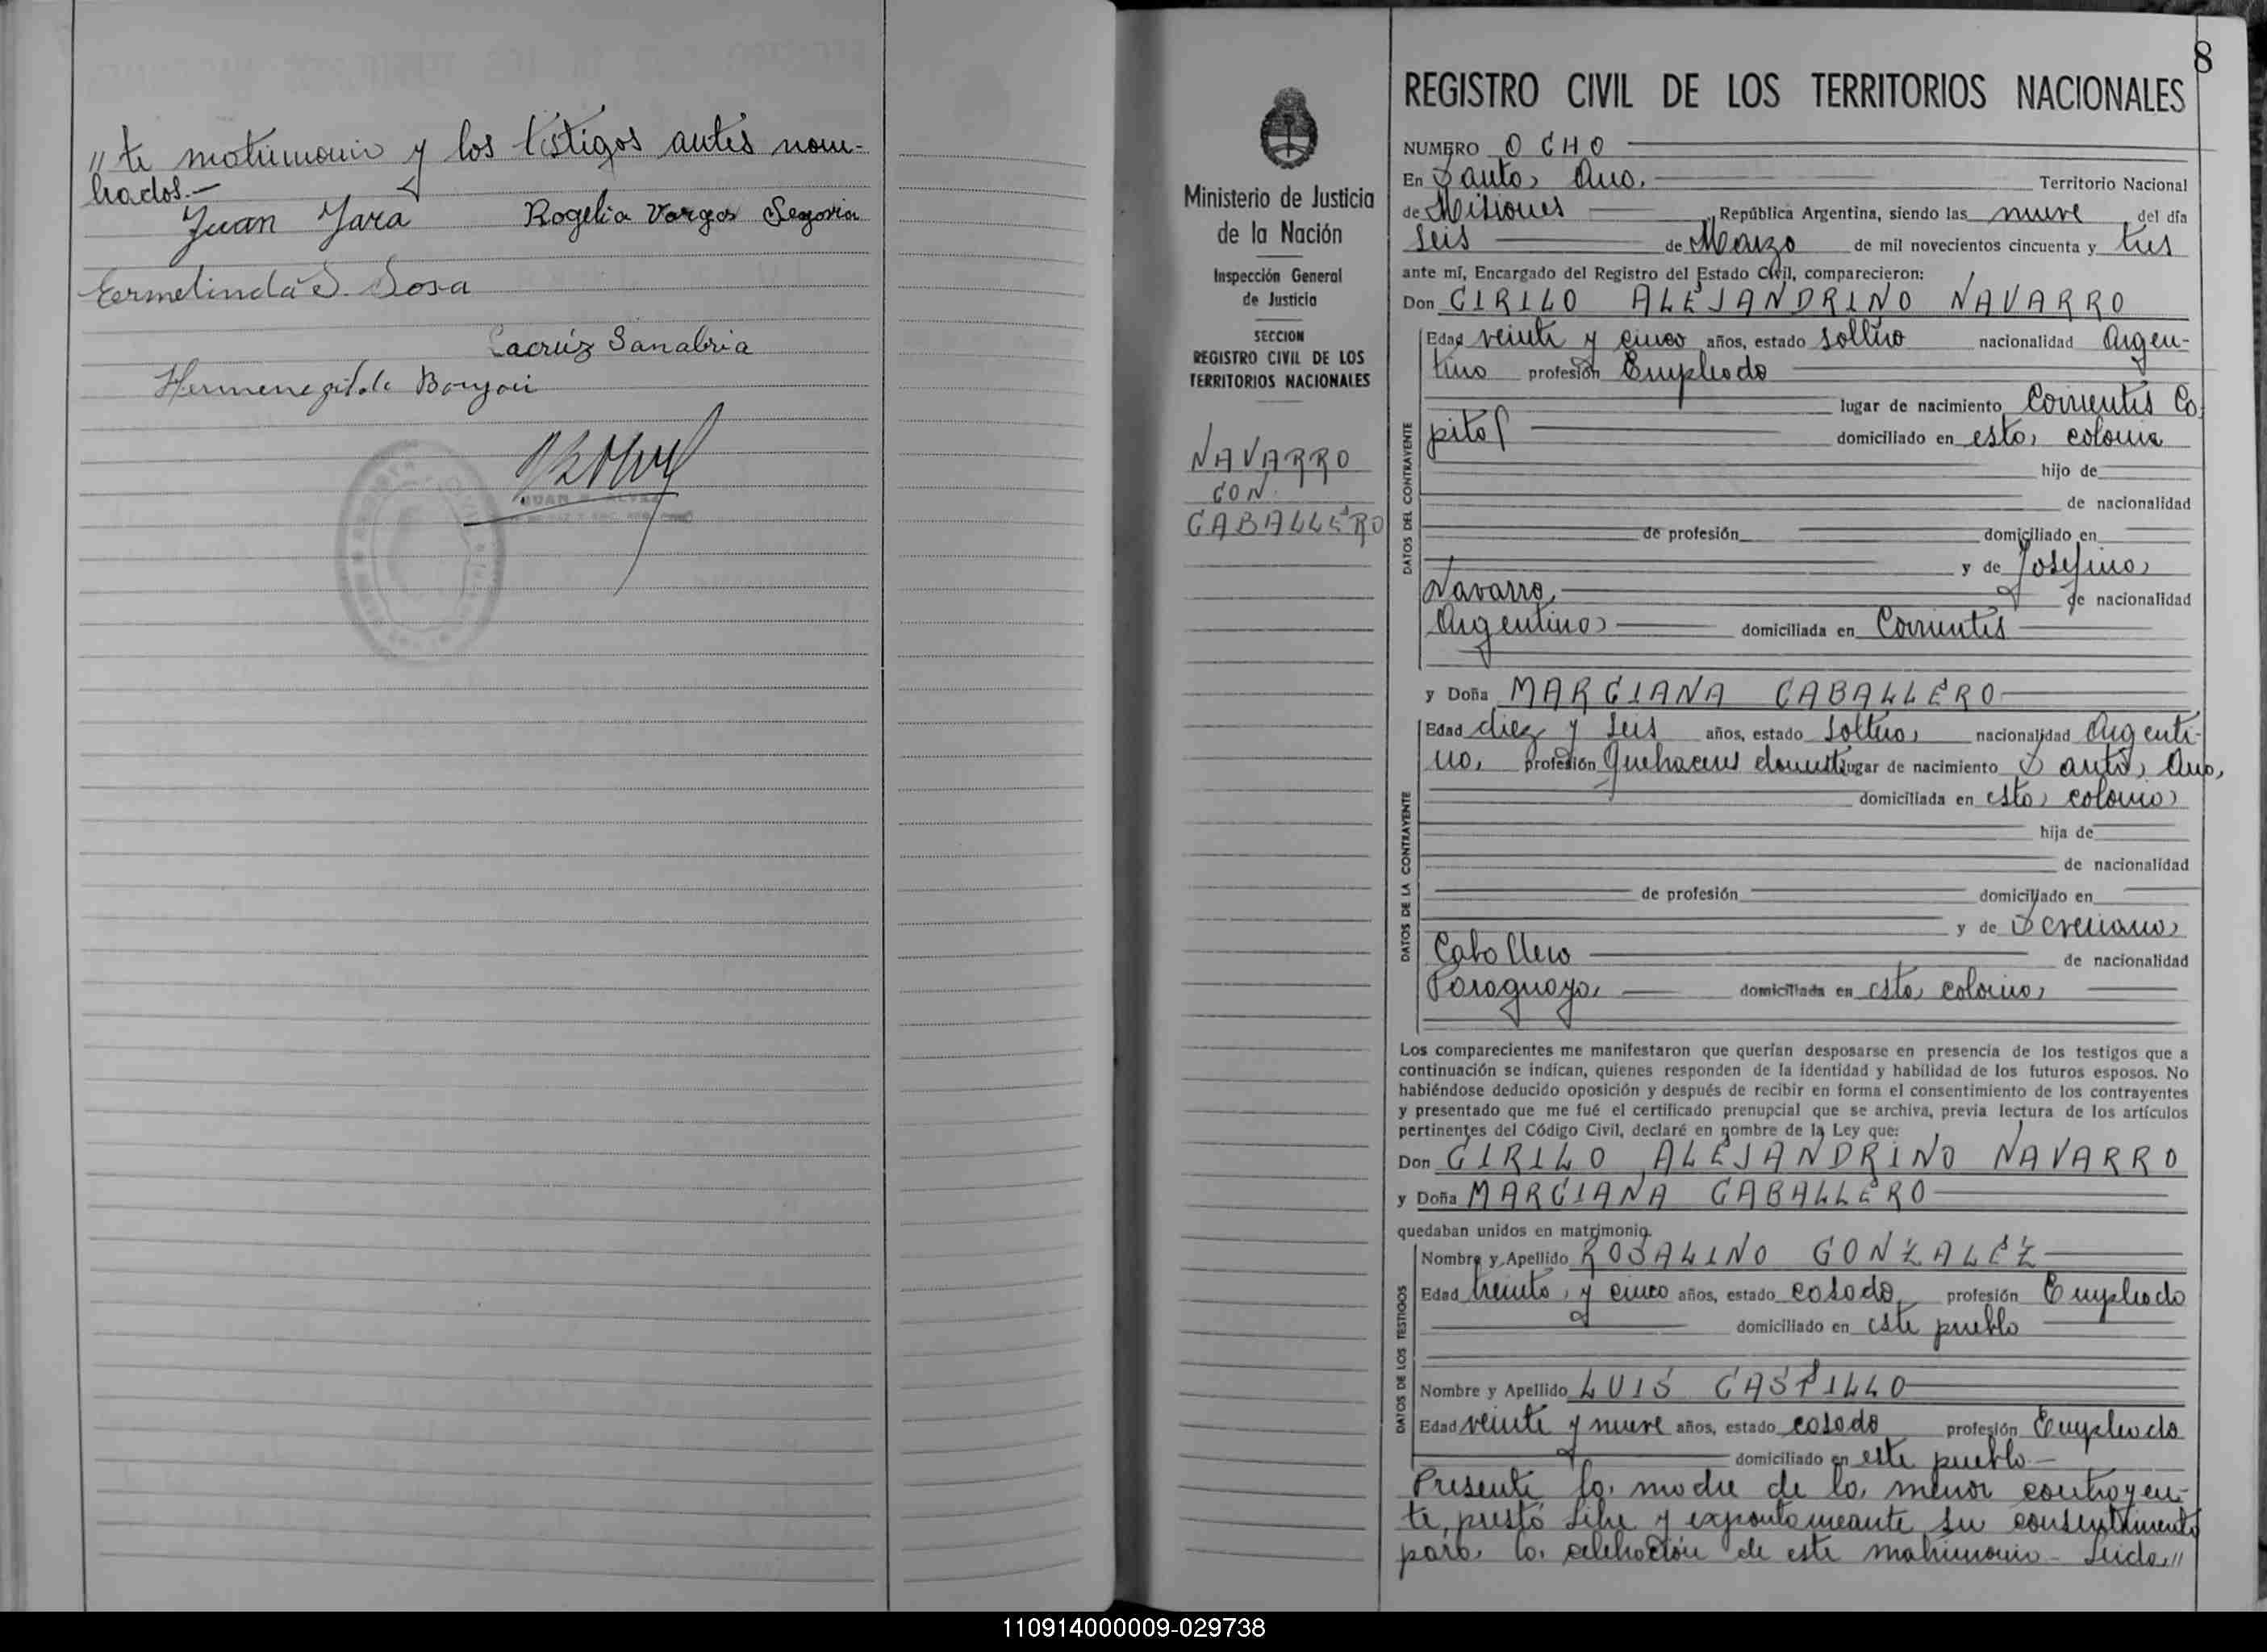 " te matrimonio y los testigos antes nom-
brados.-
Juan Jara Rogelia Vargas Segovia
Ermelinda S. Sosa
Lacrúz Sanabria
Hermenegildo
JUAN
8
REGISTRO CIVIL DE LOS TERRITORIOS NACIONALES
Ministerio de Justicia
de la Nación
Inspección General
de Justicia
SECCION
REGISTRO CIVIL DE LOS
TERRITORIOS NACIONALES
NAVARRO
CON
CABALLERO
NUMERO OCHO
En Santa Ana. Territorio Nacional
de Misiones República Argentina, siendo las nueve del día
seis de Marzo de mil novecientos cincuenta y tres
ante mí, Encargado del Registro del Estado Civil, comparecieron:
Don CIRILO ALEJANDRINO NAVARRO
DATOS DEL CONTRAYENTE
Edad veinte y cinco años, estado soltero nacionalidad Argen-
tino profesión Empleado
lugar de nacimiento Corrientes Ca
pital domiciliado en esta colonia
hijo de
de nacionalidad
de profesión domiciliado en
y de Josefina
Navarro de nacionalidad
Argentina domiciliada en Corrientes
y Doña MARCIANA CABALLERO
DATOS DE LA CONTRAYENTE
Edad diez y seis años, estado soltera nacionalidad Argenti-
na, profesión Quehaceres domest lugar de nacimiento Santa Ana,
domiciliada en esta colonia
hija de
de nacionalidad
de profesión domiciliado en
y de Screnana
Caballero de nacionalidad
Paraguaya domiciliada en esta colonia
Los comparecientes me manifestaron que querían desposarse en presencia de los testigos que a
continuación se indican, quienes responden de la identidad y habilidad de los futuros esposos. No
habiéndose deducido oposición y después de recibir en forma el consentimiento de los contrayentes
y presentado que me fué el certificado prenupcial que se archiva, previa lectura de los artículos
pertinentes del Código Civil, declaré en nombre de la Ley que:
Don CIRILO ALEJANDRINO NAVARRO
y Doña MARCIANA CABALLERO
quedaban unidos en matrimonio.
DATOS DE LOS TESTIGOS
Nombre y Apellido ROSALINO GONZALEZ
Edad treinta y cinco años, estado casado profesión Empleado
domiciliado en este pueblo
Nombre y Apellido LUIS CASTILLO
Edad veinte y nueve años, estado casado profesión Empleado
domiciliado en este pueblo.-
Presente la madre de la menor contrayen-
te, prestó libre y expontameante su consentimiento
para la celebración de este matrimonio - Leida "
110914000009-029738